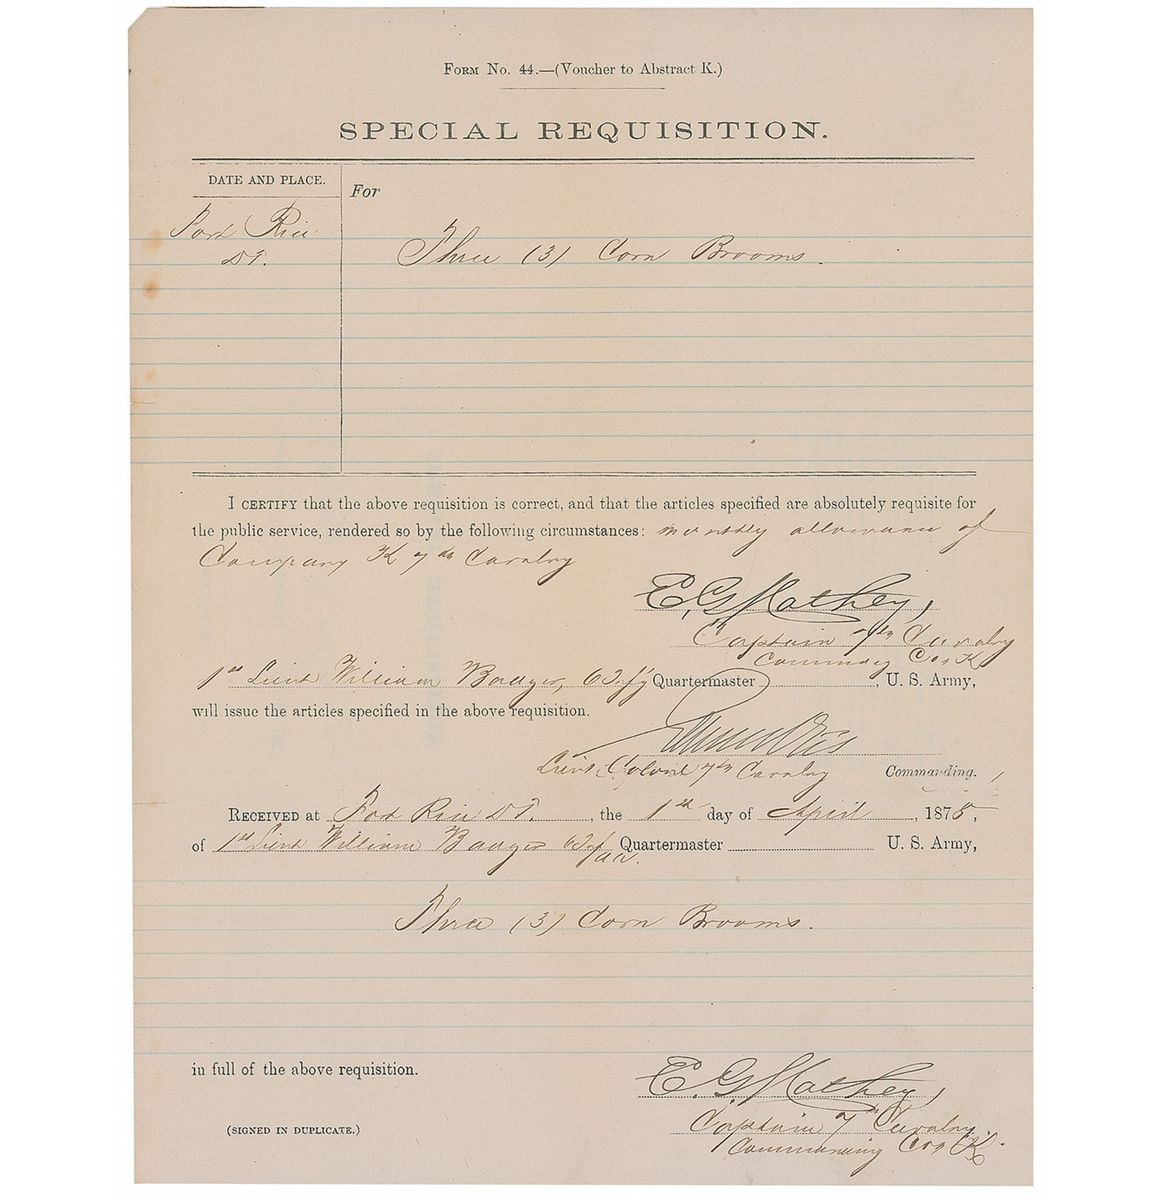 Form No. 44.—(Voucher to Abstract K.)
SPECIAL REQUISITION.
DATE AND PLACE.
For
Fort Rice
D.T.
Three (3) Corn Brooms.
I certify that the above requisition is correct, and that the articles specified are absolutely requisite for
the public service, rendered so by the following circumstances: monthly allowance of
Company K 7th Cavalry
E. G. Mathey,
Captain 7th Cavalry
Commdg Co. K
1st Lieut William Badger, 6 Inf'y Quartermaster , U. S. Army,
will issue the articles specified in the above requisition.
Lieut. Colonel 7th Cavalry Commanding.
Received at Fort Rice D.T. , the 1st day of April , 1878,
of 1st Lieut William Badger 6 Inf Quartermaster U. S. Army,
Three (3) Corn Brooms.
in full of the above requisition.
E. G. Mathey,
(SIGNED IN DUPLICATE.)
Captain 7th Cavalry.
Commanding Co. K.